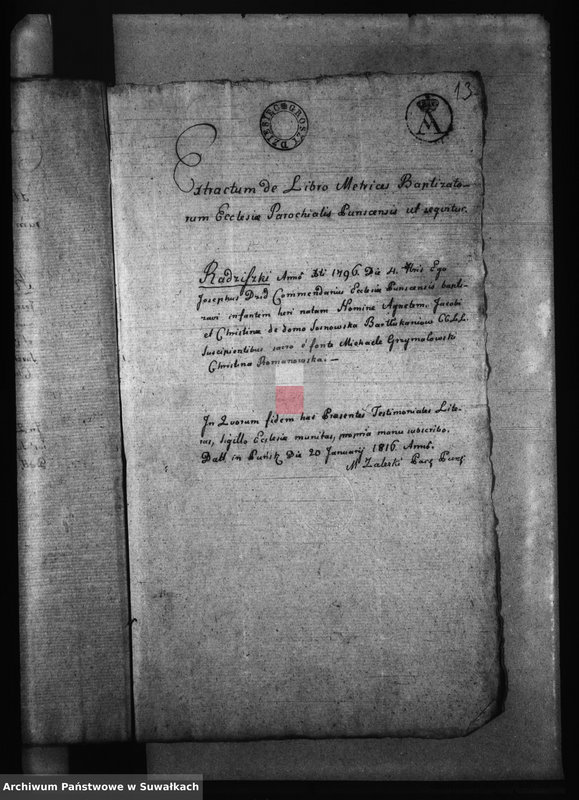 13
DZIESIĘC GROSZ
A
Extractum de Libro Metrices Baptizato-
rum Ecclesiæ Parochialis Punscensis ut sequitur.
Radziszki Anno Dni 1796 Die 4. Ego
Josephus Commendarius Ecclesiæ Punscensis bapti-
zavi infantem heri natam Nomine Agnetem Jacobi
et Christinæ de domo Sosnowska CC.LL.
Suscipientibus sacro è fonte Michaele Grzymałowski
Christina Romanowska. —
In Quorum fidem has Præsentes Testimoniales Lite-
ras, sigillo Ecclesiæ munitas, propria manu subscribo.
Datt in Puńsk Die 20 Januarij 1816 Anno.
M Zaleski
Archiwum Państwowe w Suwałkach